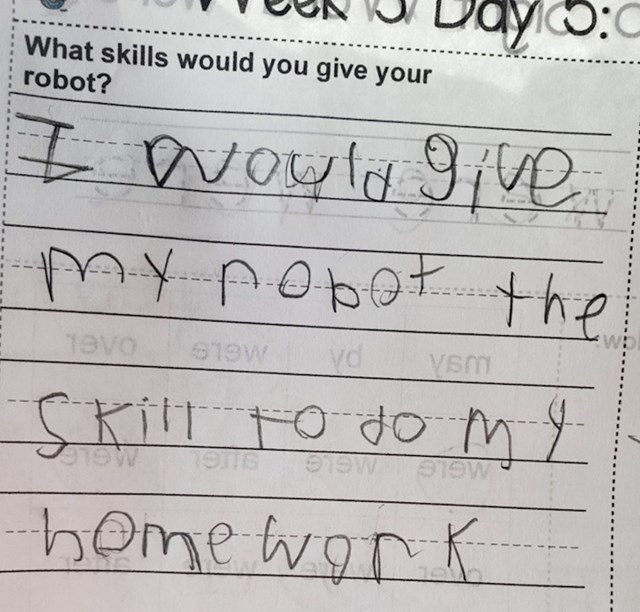 Week 3 Day 5:
What skills would you give your
robot?
I would give
my robot the
skill to do my
homework